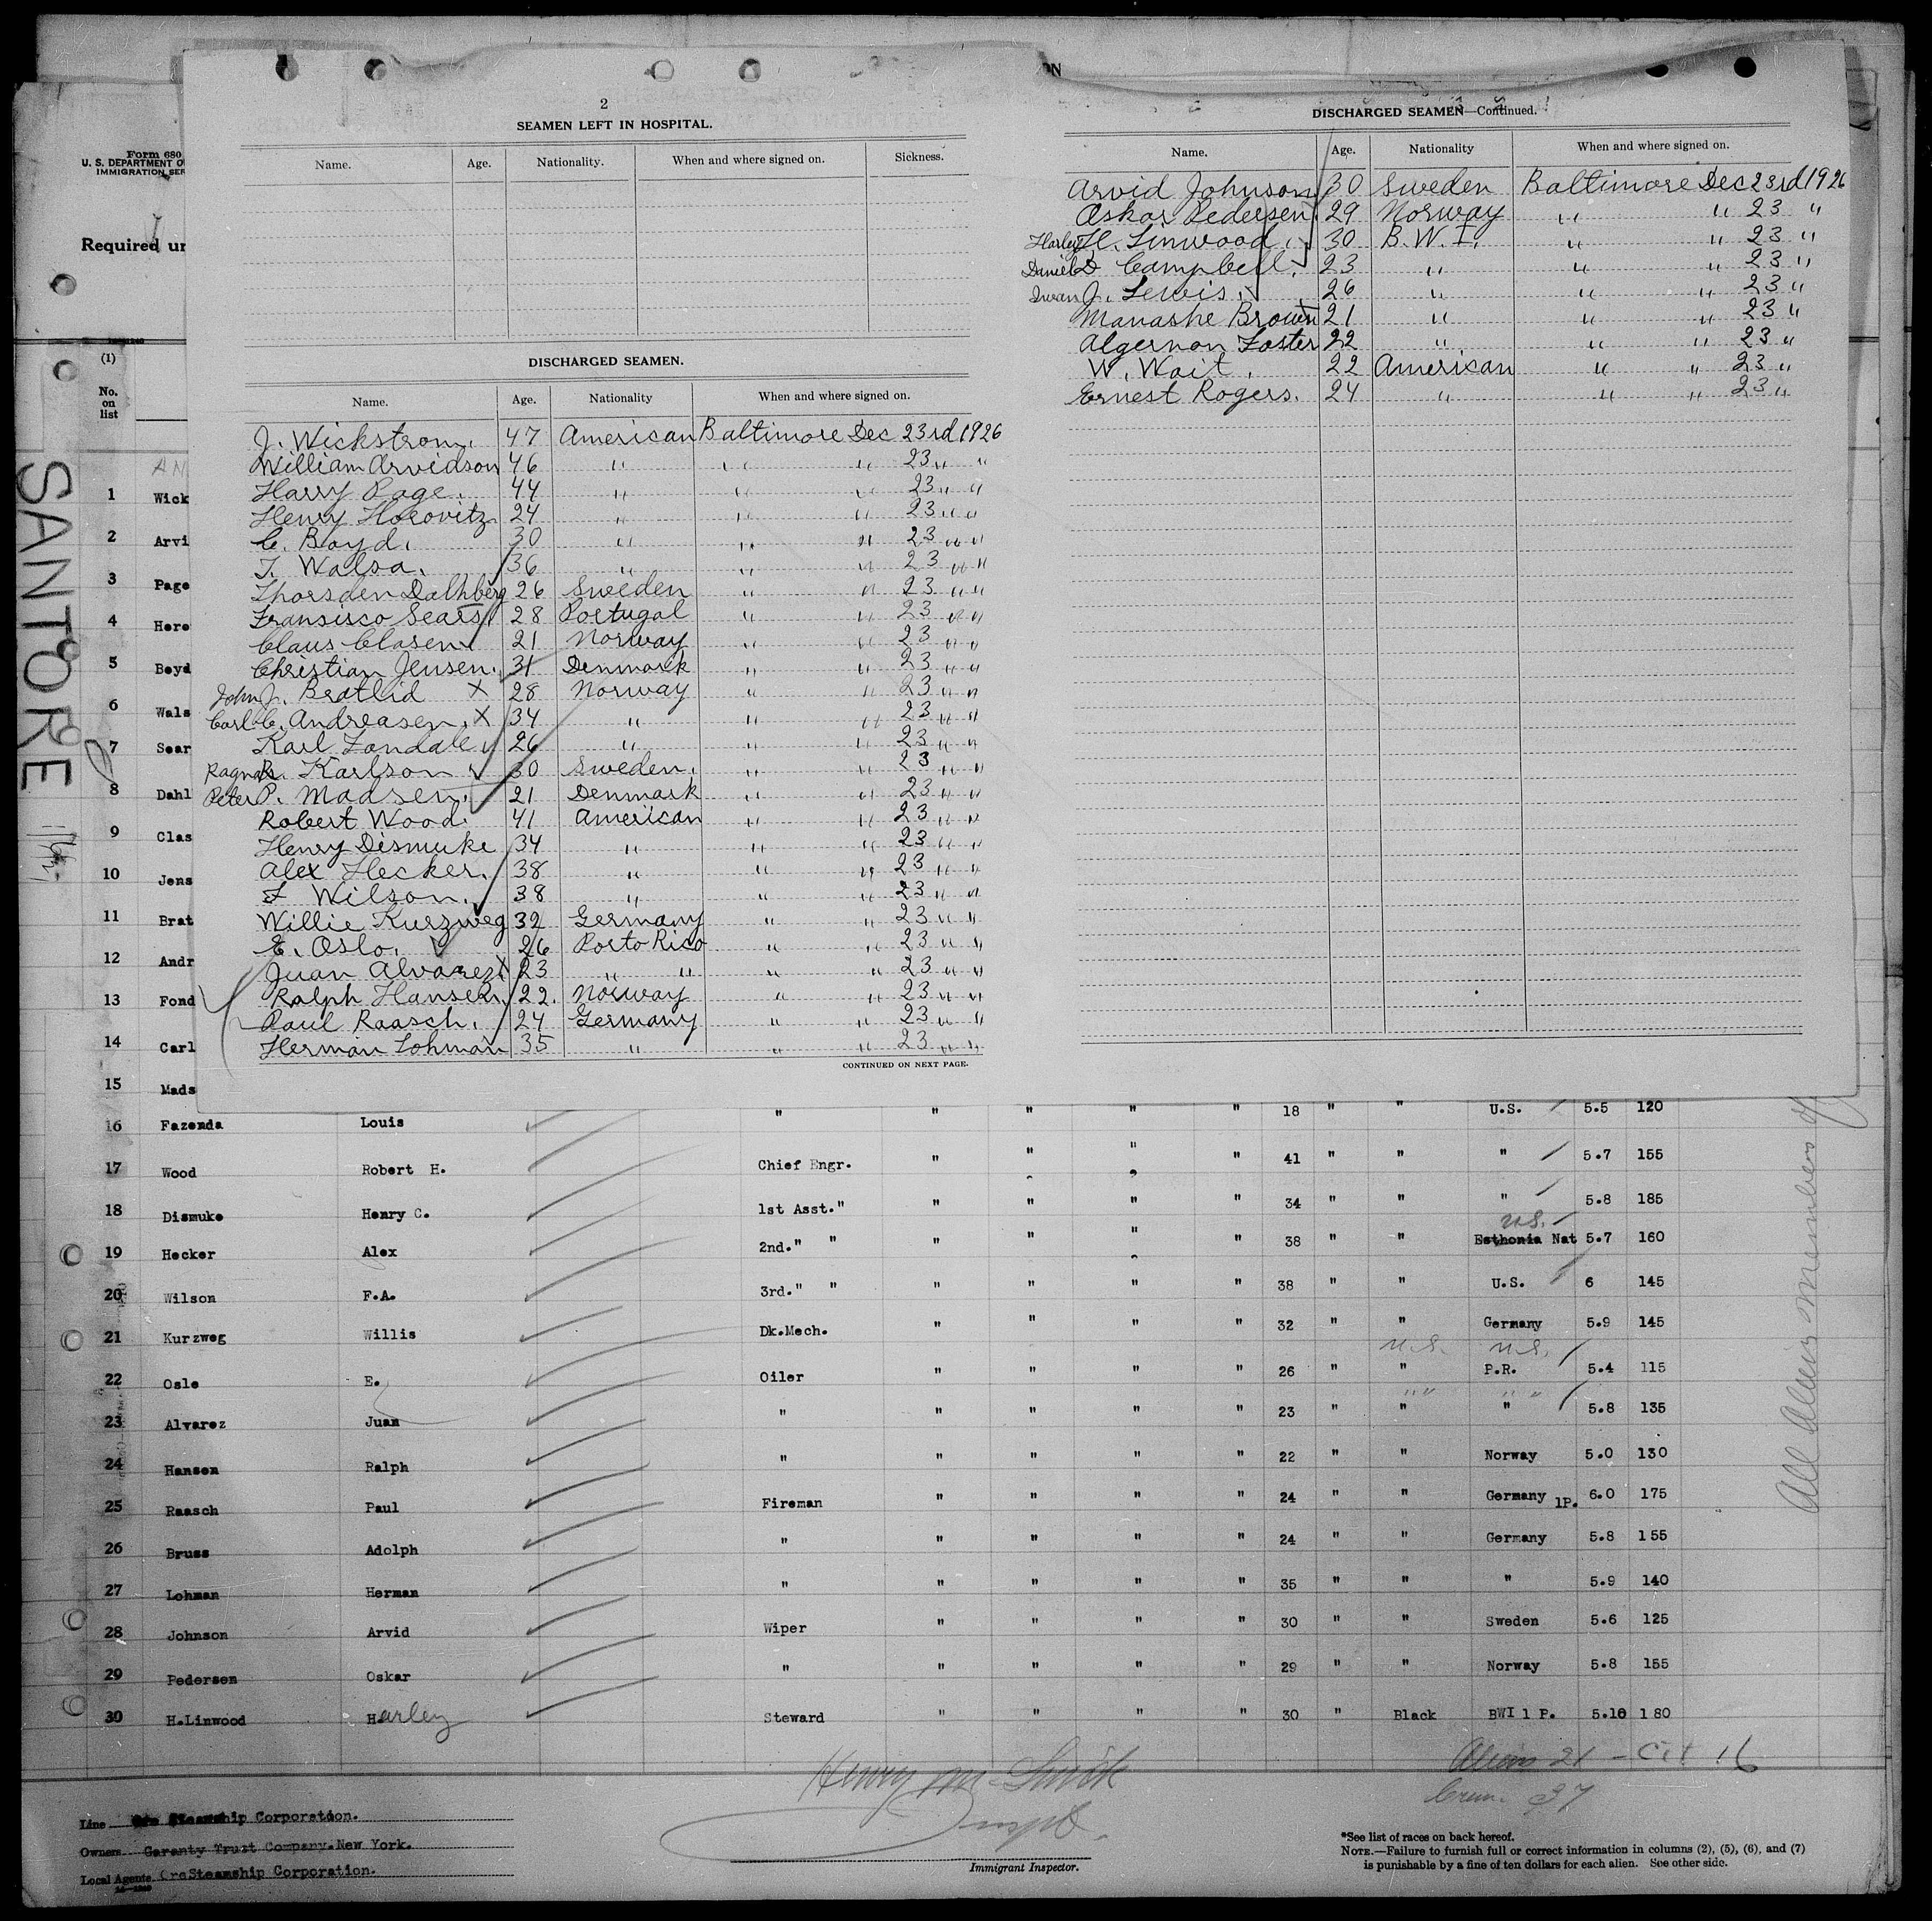 2
SEAMEN LEFT IN HOSPITAL.
Name. Age. Nationality. When and where signed on. Sickness.
DISCHARGED SEAMEN.
Name. Age. Nationality When and where signed on.
J. Wickstrom. 47 American Baltimore Dec 23rd 1926
William Arvidson 46 " " " 23 " "
Harry Page. 44 " " " 23 " "
Henry Horovitz 24 " " " 23 " "
C. Boyd. 30 " " " 23 " "
T. Walsa. 36 " " " 23 " "
Thorsden Dalhberg 26 Sweden " " 23 " "
Fransisco Sears 28 Portugal " " 23 " "
Claus Clasen 21 Norway " " 23 " "
Christian Jensen. 31 Denmark " " 23 " "
John J. Bratlid X 28 Norway " " 23 " "
Carl C. Andreasen. X 34 " " " 23 " "
Karl Fondale 26 " " " 23 " "
Ragnar R. Karlson 30 Sweden. " " 23 " "
Peter P. Madsen. 21 Denmark " " 23 " "
Robert Wood. 41 American " " 23 " "
Henry Dismuke 34 " " " 23 " "
Alex Hecker. 38 " " " 23 " "
F Wilson. 38 " " " 23 " "
Willie Kurzweg 32 Germany " " 23 " "
E. Oslo. 26 Porto Rico " " 23 " "
Juan Alvarez 23 " " " " 23 " "
Ralph Hansen. 22. Norway " " 23 " "
Paul Raasch. 24 Germany " " 23 " "
Herman Lohman 35 " " " 23 " "
CONTINUED ON NEXT PAGE.
ON
DISCHARGED SEAMEN—Continued.
Name. Age. Nationality When and where signed on.
Arvid Johnson 30 Sweden Baltimore Dec 23rd 1926
Oskar Pedersen 29 Norway " " 23 "
Harley H. Linwood. 30 B.W.I. " " 23 "
Daniel D Campbell. 23 " " " 23 "
J. Lewis. 26 " " " 23 "
Manashe Brown 21 " " " 23 "
Algernon Foster 22 " " " 23 "
W. Wait. 22 American " " 23 "
Ernest Rogers. 24 " " " 23 "
Form 680
U. S. DEPARTMENT O
IMMIGRATION SER
Required un
(1)
No.
on
list
SANTORE
1 Wick
2 Arvi
3 Page
4 Hore
5 Boyd
6 Wals
7 Sear
8 Dahl
9 Clas
10 Jens
11 Brat
12 Andr
13 Fond
14 Carl
15 Mads
16 Fazenda Louis " " " " " 18 " " U.S. 5.5 120
17 Wood Robert H. Chief Engr. " " " " 41 " " " 5.7 155
18 Dismuke Henry C. 1st Asst." " " " " 34 " " " 5.8 185
19 Hecker Alex 2nd." " " " " " 38 " " U.S. Esthonia Nat 5.7 160
20 Wilson F.A. 3rd." " " " " " 38 " " U.S. 6 145
21 Kurzweg Willis Dk.Mech. " " " " 32 " " Germany 5.9 145
22 Osle E. Oiler " " " " 26 " U.S. " U.S. P.R. 5.4 115
23 Alvarez Juan " " " " " 23 " " " 5.8 135
24 Hansen Ralph " " " " " 22 " " Norway 5.0 130
25 Raasch Paul Fireman " " " " 24 " " Germany 1P. 6.0 175
26 Bruss Adolph " " " " " 24 " " Germany 5.8 155
27 Lohman Herman " " " " " 35 " " " 5.9 140
28 Johnson Arvid Wiper " " " " 30 " " Sweden 5.6 125
29 Pedersen Oskar " " " " " 29 " " Norway 5.8 155
30 H.Linwood Harley Steward " " " " 30 " Black BWI 1 P. 5.10 180
All Alien Members of
Aliens 21 - Cit 16
Crew. 37
Henry M. Smith
Inspt.
Immigrant Inspector.
Line Ore Steamship Corporation.
Owners Garanty Trust Company.New York.
Local Agents. Ore Steamship Corporation.
*See list of races on back hereof.
NOTE.—Failure to furnish full or correct information in columns (2), (5), (6), and (7)
is punishable by a fine of ten dollars for each alien. See other side.